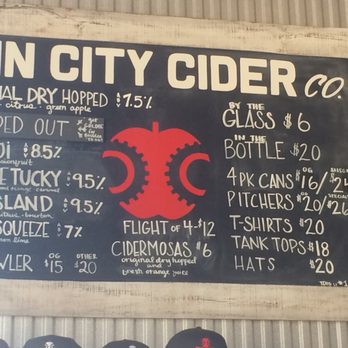 N CITY CIDER CO.
AL DRY HOPPED 7.5%
citrus · green apple
PED OUT
JI 8.5%
ETUCKY 9.5%
SLAND 9.5%
bourbon
SQUEEZE 7%
lime
OG OTHER
WLER $15 $20
FLIGHT OF 4 - $12
CIDERMOSAS $6
original dry hopped
and
fresh orange juice
BY THE
GLASS $6
IN THE
BOTTLE $20
OG
4PK CANS $16/$24
PITCHERS $20/$26
T-SHIRTS $20
TANK TOPS $18
HATS $20